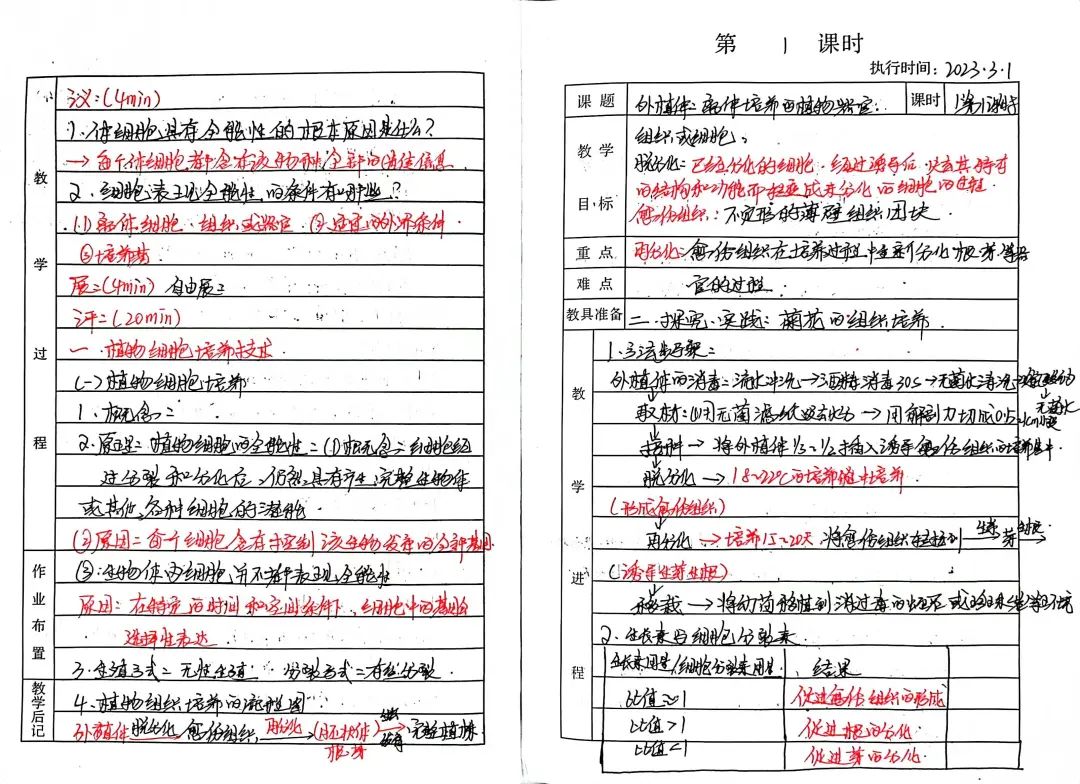 议:(4min)
1、体细胞具有全能性的根本原因是什么?
→每个体细胞都含有该物种全部的遗传信息
2、细胞表现全能性的条件有哪些?
(1)离体细胞、组织或器官 ③适宜的外界条件
②培养基
展:(4min) 自由展示
评:(20min)
一、植物细胞培养技术
(一)植物细胞培养
1、概念:
2、原理:植物细胞的全能性:(1)概念:细胞经
过分裂和分化后,仍然具有产生完整生物体
或其他各种细胞的潜能
(2)原因:每个细胞含有该生物发育的全部基因
(3)生物体的细胞并不都表现全能性
原因:在特定的时间和空间条件下,细胞中的基因
选择性表达
3、生殖方式:无性生殖 分裂方式:有丝分裂
4、植物组织培养的流程图
外植体 脱分化 愈伤组织 再分化 (胚状体) 完整植株
根、芽
教学过程
作业布置
教学后记
第 1 课时
执行时间:2023.3.1
课题 外植体:离体培养的植物器官、 课时 第1课时
教学目标 组织或细胞。
脱分化:已经分化的细胞,经过诱导后,失去其特有
的结构和功能而转变成未分化的细胞的过程
愈伤组织:不定形的薄壁组织团块
重点 再分化:愈伤组织在培养过程中重新分化根芽等器
难点 官的过程
教具准备 二、探究·实践:菊花的组织培养
教学进程
1、方法步骤:
外植体的消毒:流水冲洗→酒精消毒30s→无菌水清洗→
无菌水
取材:用无菌滤纸吸去水分→用解剖刀切成0.5~1cm
接种→将外植体1/3~1/2插入诱导愈伤组织的培养基中
脱分化→18~22℃的培养箱中培养
(形成愈伤组织)
再分化→培养15~20天,将愈伤组织转接到 生芽 生根
(诱导生芽生根)
移栽→将幼苗移植到消过毒的蛭石或珍珠岩等环境
2、生长素与细胞分裂素
生长素用量/细胞分裂素用量 结果
比值≈1 促进愈伤组织的形成
比值>1 促进根的分化
比值<1 促进芽的分化